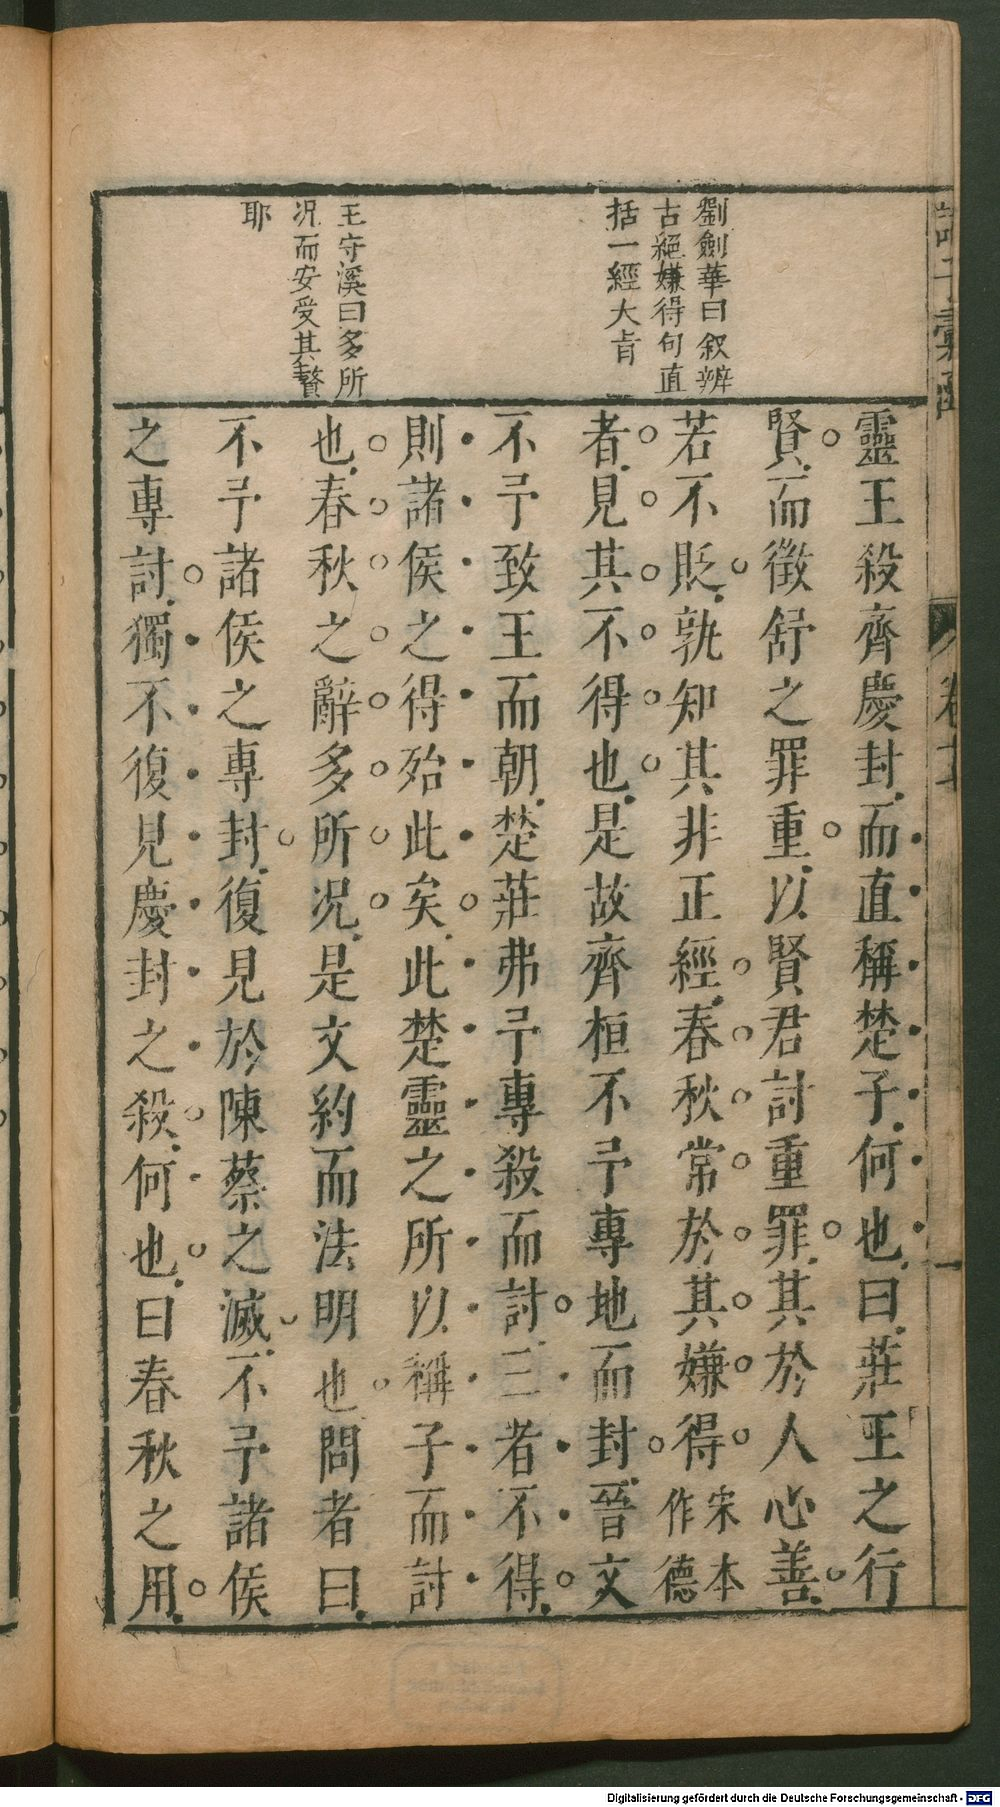 劉劍華曰叙辨
古絕嫌得句直
括一經大㫖
王守溪曰多所
况而安受其贅
耶
靈王殺齊慶封而直稱楚子何也曰莊王之行
賢而徵舒之罪重以賢君討重罪其於人心善
若不貶孰知其非正經春秋常於其嫌得宋本作德
者見其不得也是故齊桓不予專地而封晉文
不予致王而朝楚莊弗予專殺而討三者不得
則諸侯之得殆此矣此楚靈之所以稱子而討
也春秋之辭多所况是文約而法明也問者曰
不予諸侯之專封復見於陳蔡之滅不予諸侯
之專討獨不復見慶封之殺何也曰春秋之用
Digitalisierung gefördert durch die Deutsche Forschungsgemeinschaft - DFG